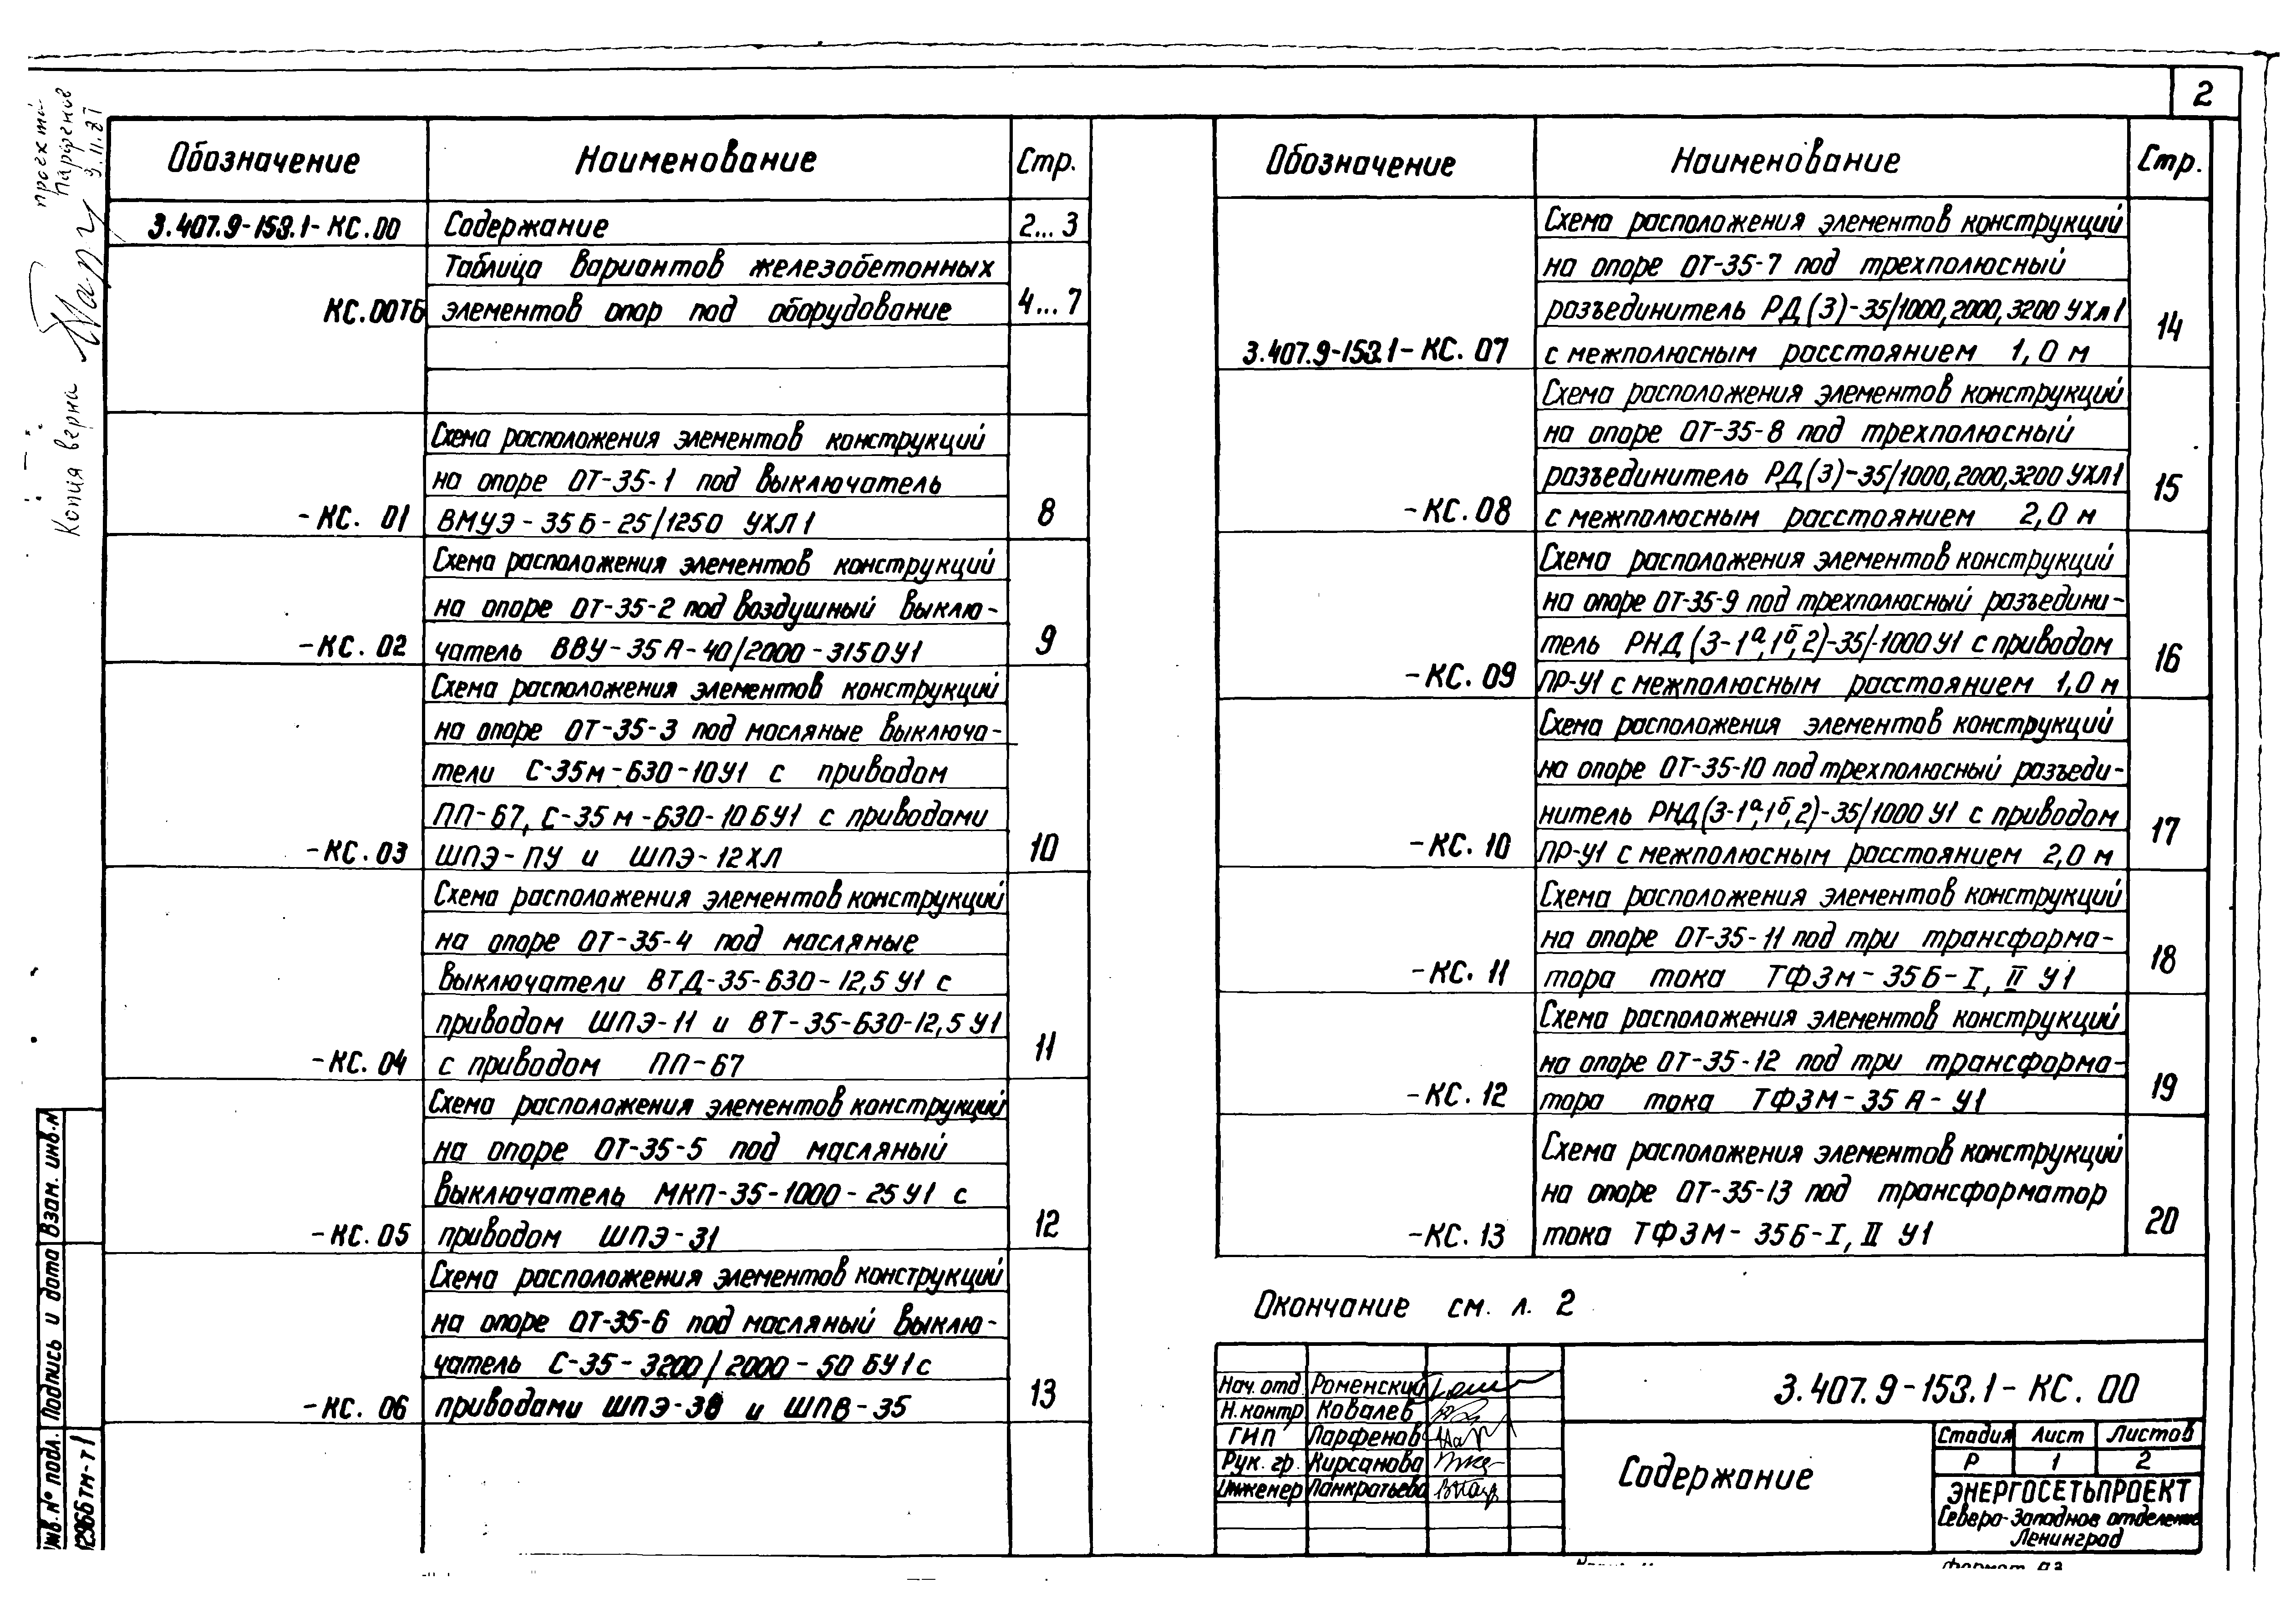 2
Обозначение Наименование Стр.
3.407.9-153.1-КС.00 Содержание 2...3
Таблица вариантов железобетонных
КС.00ТБ элементов опор под оборудование 4...7
Схема расположения элементов конструкций
на опоре ОТ-35-1 под выключатель
-КС. 01 ВМУЭ-35Б-25/1250 УХЛ1 8
Схема расположения элементов конструкций
на опоре ОТ-35-2 под воздушный выклю-
-КС. 02 чатель ВВУ-35А-40/2000-3150У1 9
Схема расположения элементов конструкций
на опоре ОТ-35-3 под масляные выключа-
тели С-35м-630-10У1 с приводом
ПП-67, С-35м-630-10БУ1 с приводами
-КС.03 ШПЭ-ПУ и ШПЭ-12ХЛ 10
Схема расположения элементов конструкций
на опоре ОТ-35-4 под масляные
выключатели ВТД-35-630-12,5У1 с
приводом ШПЭ-11 и ВТ-35-630-12,5У1
-КС. 04 с приводом ПП-67 11
Схема расположения элементов конструкций
на опоре ОТ-35-5 под масляный
выключатель МКП-35-1000-25У1 с
-КС. 05 приводом ШПЭ-31 12
Схема расположения элементов конструкций
на опоре ОТ-35-6 под масляный выклю-
чатель С-35-3200/2000-50БУ1 с
-КС. 06 приводами ШПЭ-38 и ШПВ-35 13
Обозначение Наименование Стр.
Схема расположения элементов конструкций
на опоре ОТ-35-7 под трехполюсный
разъединитель РД(З)-35/1000,2000,3200 УХЛ1
3.407.9-153.1-КС. 07 с межполюсным расстоянием 1,0 м 14
Схема расположения элементов конструкций
на опоре ОТ-35-8 под трехполюсный
разъединитель РД(З)-35/1000,2000,3200УХЛ1
-КС.08 с межполюсным расстоянием 2,0 м 15
Схема расположения элементов конструкций
на опоре ОТ-35-9 под трехполюсный разъедини-
тель РНД(З-1а,1б,2)-35/-1000У1 с приводом
-КС. 09 ПР-У1 с межполюсным расстоянием 1,0 м 16
Схема расположения элементов конструкций
на опоре ОТ-35-10 под трехполюсный разъеди-
нитель РНД(З-1а,1б,2)-35/1000 У1 с приводом
-КС. 10 ПР-У1 с межполюсным расстоянием 2,0 м 17
Схема расположения элементов конструкций
на опоре ОТ-35-11 под три трансформа-
-КС. 11 тора тока ТФЗм-35Б-I, II У1 18
Схема расположения элементов конструкций
на опоре ОТ-35-12 под три трансформа-
-КС. 12 тора тока ТФЗМ-35А-У1 19
Схема расположения элементов конструкций
на опоре ОТ-35-13 под трансформатор
-КС. 13 тока ТФЗМ-35Б-I, II У1 20
Окончание см. л. 2
Нач. отд. Роменский
Н.контр Ковалев
ГИП Парфенов
Рук. гр. Кирсанова
Инженер Панкратьева
3.407.9-153.1-КС. 00
Содержание
Стадия Лист Листов
Р 1 2
ЭНЕРГОСЕТЬПРОЕКТ
Северо-Западное отделение
Ленинград
Формат А3
Копия верна
Парфенов
Взам. инв.№
Подпись и дата
Инв. № подл.
12966тм-т1